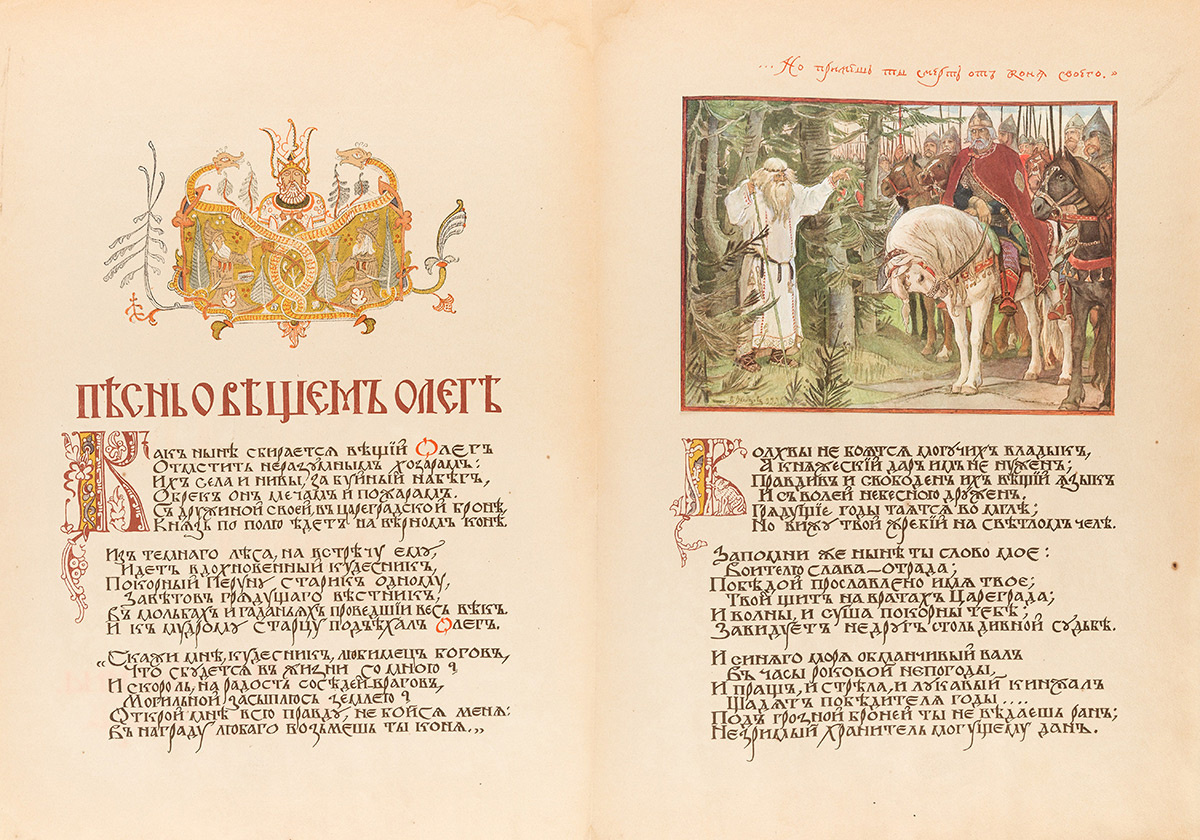 ПѢСНЬ О ВѢЩЕМЪ ОЛЕГѢ
Какъ нынѣ сбирается вѣщій Олегъ
Отмстить неразумнымъ хозарамъ:
Ихъ села и нивы, за буйный набѣгъ,
Обрек онъ мечамъ и пожарамъ.
Съ дружиной своей, въ цареградской бронѣ,
Князь по полю ѣдетъ на вѣрномъ конѣ.
Изъ темнаго лѣса, на встрѣчу ему,
Идетъ вдохновенный кудесникъ,
Покорный Перуну старикъ одному,
Завѣтовъ грядущаго вѣстникъ,
Въ мольбахъ и гаданьяхъ проведшій весь вѣкъ.
И къ мудрому старцу подъѣхалъ Олегъ.
„Скажи мнѣ, кудесникъ, любимецъ боговъ,
Что сбудется въ жизни со мною?
И скоро ль, на радость сосѣдей враговъ,
Могильной засыплюсь землею?
Открой мнѣ всю правду, не бойся меня:
Въ награду любаго возьмешь ты коня.„
... Но примешь ты смерть отъ коня своего.»
Волхвы не боятся могучихъ владыкъ,
А княжескій даръ имъ не нуженъ;
Правдивъ и свободенъ ихъ вѣщій языкъ
И съ волей небесною друженъ.
Грядущіе годы таятся во мглѣ;
Но вижу твой жребій на свѣтломъ челѣ.
Запомни же нынѣ ты слово мое:
Воителю слава—отрада;
Побѣдой прославлено имя твое;
Твой щитъ на вратахъ Цареграда;
И волны, и суша покорны тебѣ;
Завидуетъ недругъ столь дивной судьбѣ.
И синяго моря обманчивый валъ
Въ часы роковой непогоды,
И пращъ, и стрѣла, и лукавый кинжалъ
Щадятъ побѣдителя годы....
Подъ грозной броней ты не вѣдаешь ранъ;
Незримый хранитель могущему данъ.